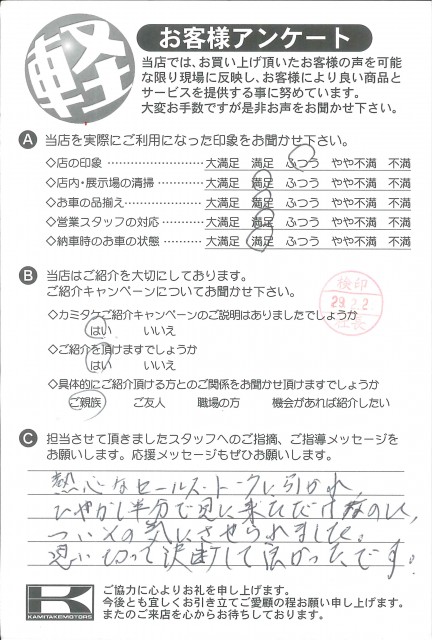 軽
お客様アンケート
当店では、お買い上げ頂いたお客様の声を可能
な限り現場に反映し、お客様により良い商品と
サービスを提供する事に努めています。
大変お手数ですが是非お声をお聞かせ下さい。
A 当店を実際にご利用になった印象をお聞かせ下さい。
◇店の印象 ………………… 大満足 満足 ふつう やや不満 不満
◇店内・展示場の清掃 ……… 大満足 満足 ふつう やや不満 不満
◇お車の品揃え ……………… 大満足 満足 ふつう やや不満 不満
◇営業スタッフの対応 ……… 大満足 満足 ふつう やや不満 不満
◇納車時のお車の状態 ……… 大満足 満足 ふつう やや不満 不満
B 当店はご紹介を大切にしております。
ご紹介キャンペーンについてお聞かせ下さい。
検印
29.2.2
社長
◇カミタケご紹介キャンペーンのご説明はありましたでしょうか
はい いいえ
◇ご紹介を頂けますでしょうか
はい いいえ
◇具体的にご紹介頂ける方とのご関係をお聞かせ頂けますでしょうか
ご親族 ご友人 職場の方 機会があれば紹介したい
C 担当させて頂きましたスタッフへのご指摘、ご指導メッセージを
お願いします。応援メッセージもぜひお願いします。
熱心なセールストークに引かれ、
ひやかし半分で見に来ただけなのに、
ついその気にさせられました。
思い切って決断して良かったです!
K
KAMITAKEMOTORS
ご協力に心よりお礼を申し上げます。
今後とも宜しくお引き立てご愛顧の程お願い申し上げます。
またのご来店を心からお待ちしております。